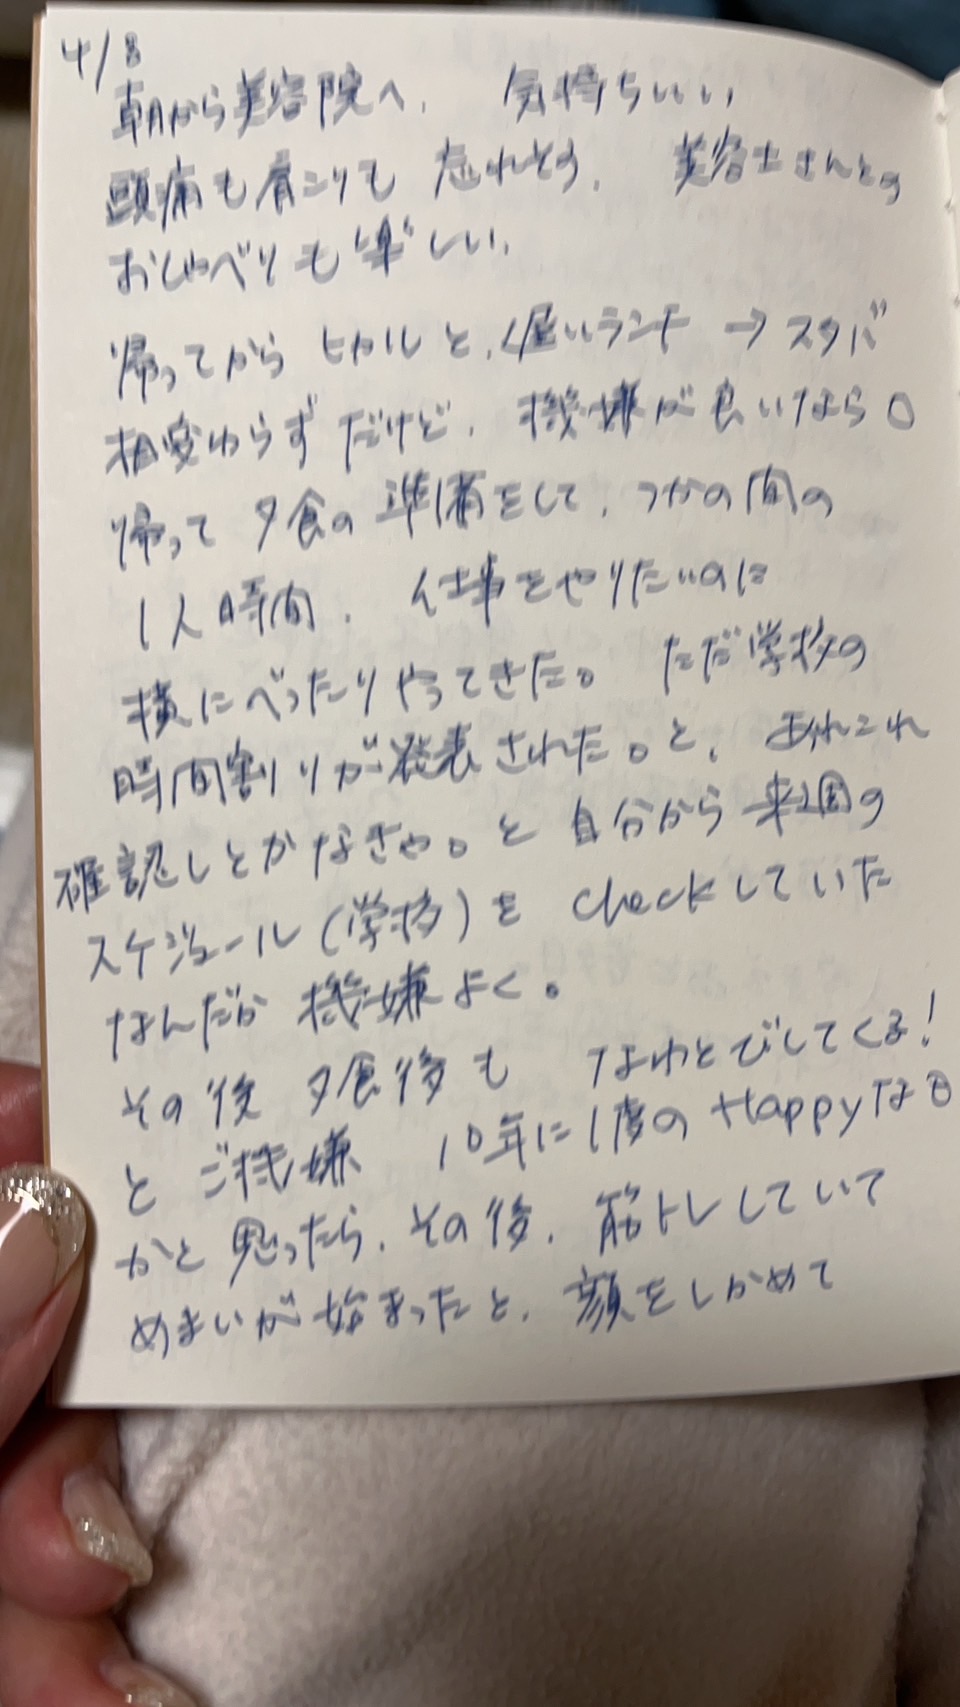 4/8
朝から美容院へ、 気持ちいい
頭痛も肩こりも 忘れそう、 美容士さんとの
おしゃべりも楽しい。
帰ってから ヒカルと、遅いランチ → スタバ
相変わらずだけど、機嫌が良いなら○
帰って 夕食の 準備をして、つかの間の
1人時間、 仕事をやりたいのに
横にべったりやってきた。 ただ学校の
時間割りが発表された。と、あれこれ
確認しとかなきゃ。と 自分から 来週の
スケジュール(学校)を checkしていた
なんだか 機嫌よく。
その後 夕食後も なわとびしてくる!
と ご機嫌 10年に1度の Happyな日
かと 思ったら、その後、筋トレしていて
めまいが始まったと、顔をしかめて